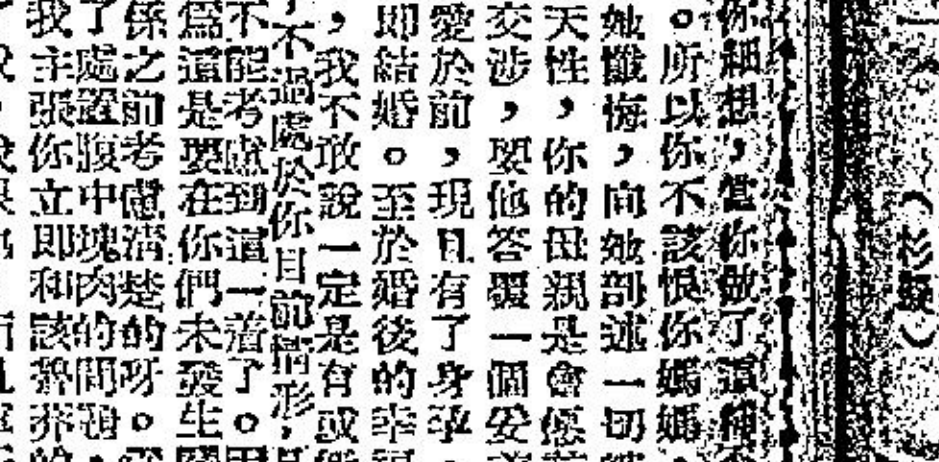 （杉疑）
你細想，當你做了這種
。所以你不該恨你媽媽
她懺悔，向她剖述一切
天性，你的母親是會
交涉，要他答覆一個妥
愛於前，現且有了身孕
即結婚。至於婚後的幸
，我不敢說一定是有或
，不過處於你目前情形，
不能考慮到這一着了。
爲這是要在你們未發生
係之前考慮清楚的呀。
了處置腹中塊肉的問題，
我主張你立即和該